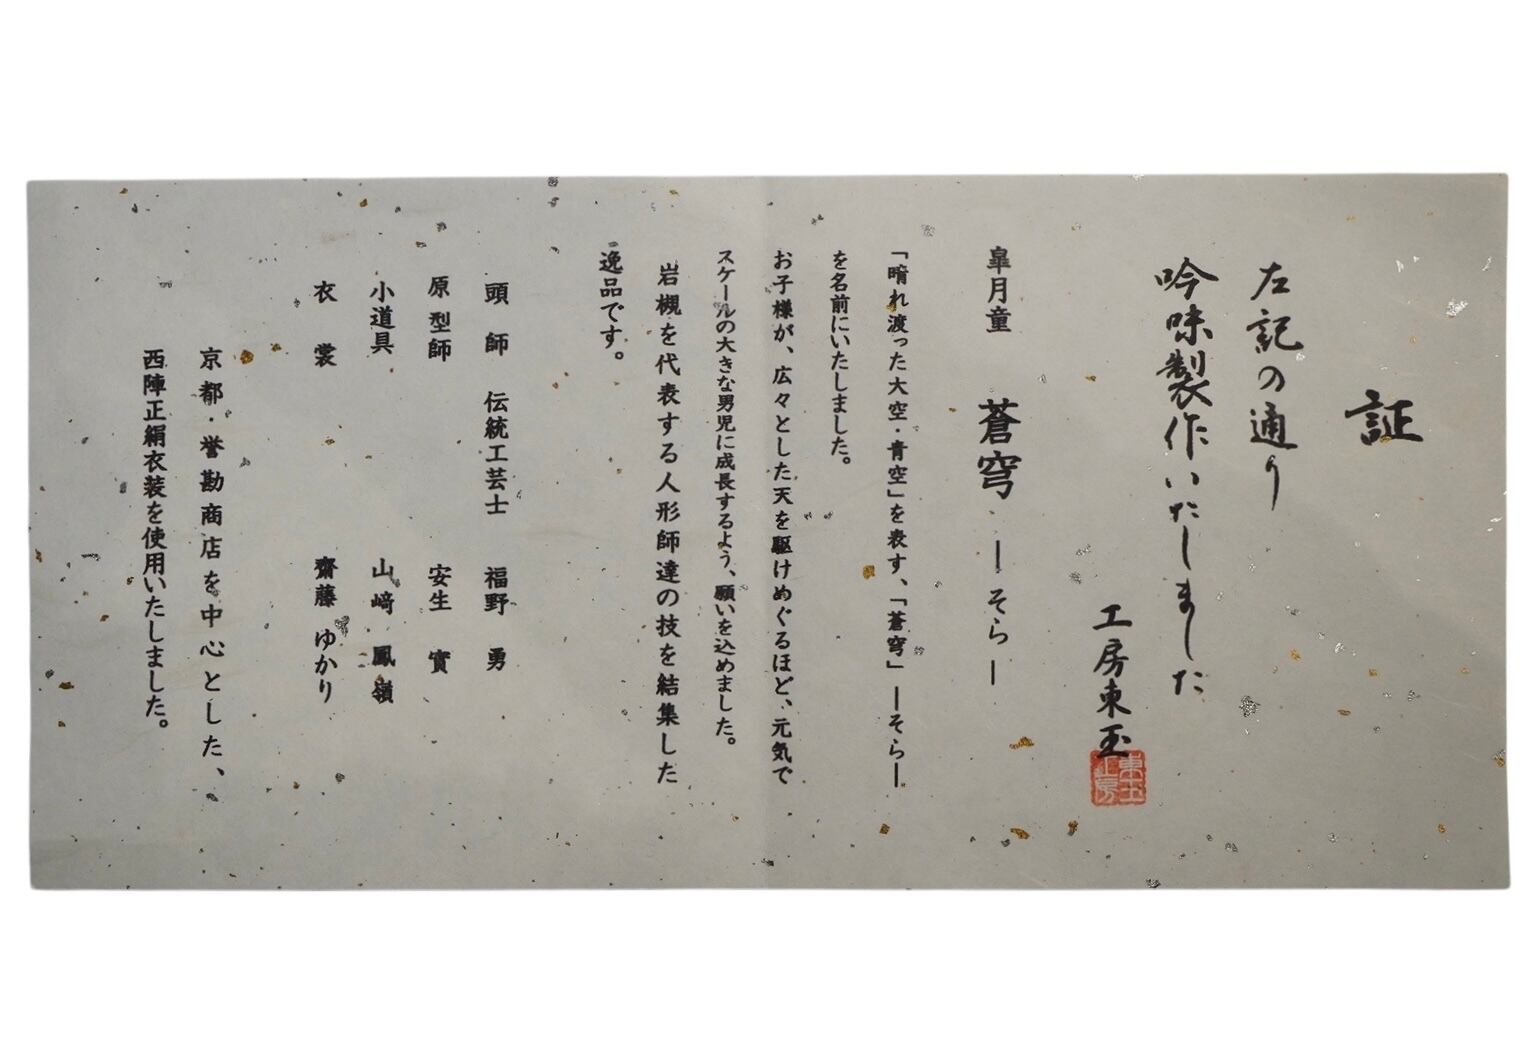 証
左記の通り
吟味製作いたしました
工房東玉
皐月童　蒼穹　ーそらー
「晴れ渡った大空・青空」を表す、「蒼穹」ーそらー
を名前にいたしました。
お子様が、広々とした天を駆けめぐるほど、元気で
スケールの大きな男児に成長するよう、願いを込めました。
岩槻を代表する人形師達の技を結集した
逸品です。
頭師　伝統工芸士　福野　勇
原型師　安生　實
小道具　山﨑　鳳嶺
衣裳　齋藤　ゆかり
京都・誉勘商店を中心とした、
西陣正絹衣装を使用いたしました。